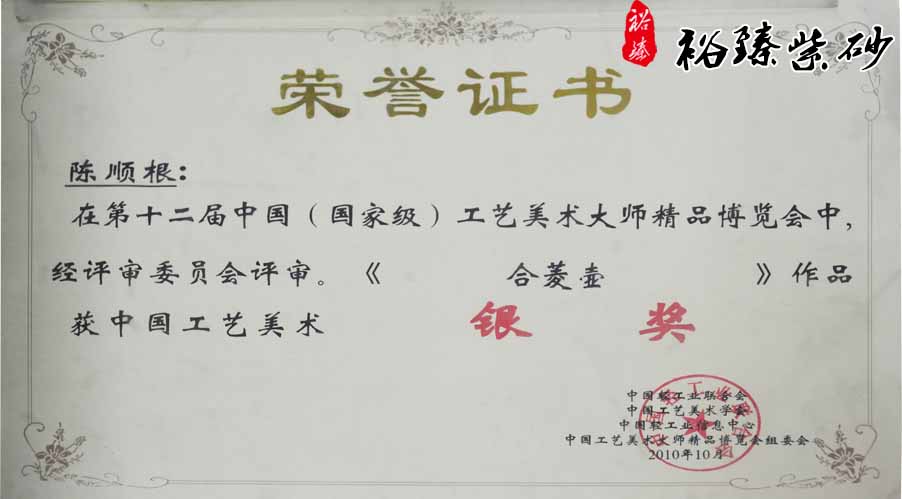 裕臻
裕臻紫砂
荣誉证书
陈顺根：
在第十二届中国（国家级）工艺美术大师精品博览会中，
经评审委员会评审。《 合菱壶 》作品
获中国工艺美术 银奖
中国轻工业联合会
中国工艺美术学会
中国轻工业信息中心
中国工艺美术大师精品博览会组委会
2010年10月